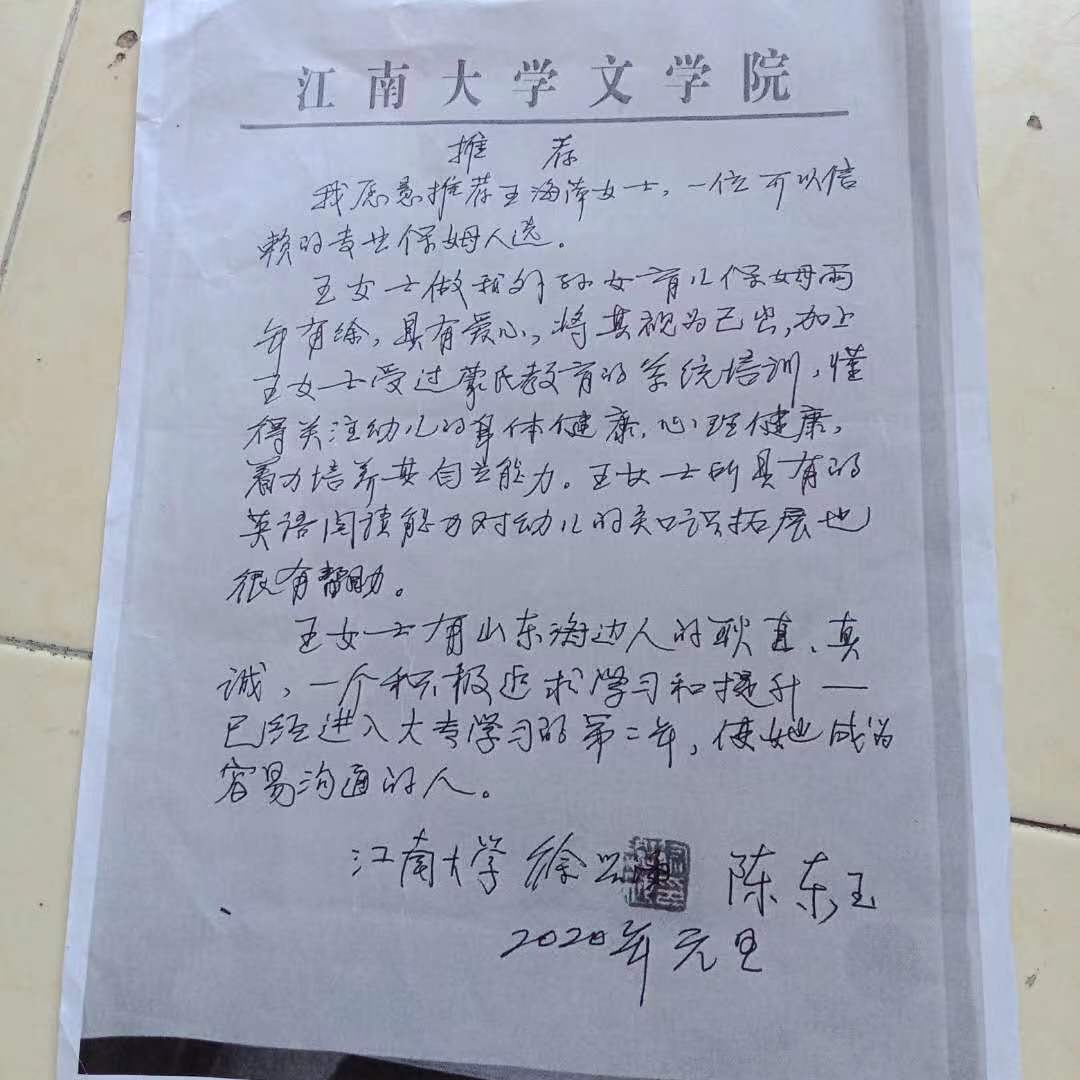 江南大学文学院
推荐
我愿意推荐王海萍女士，一位可以信
赖的专业保姆人选。
王女士做我外孙女育儿保姆两
年有馀，具有爱心，将其视为己出，加上
王女士受过蒙氏教育的系统培训，懂
得关注幼儿的身体健康、心理健康，
着力培养其自立能力。王女士所具有的
英语阅读能力对幼儿的知识拓展也
很有帮助。
王女士有山东海边人的耿直、真
诚，一个积极追求学习和提升——
已经进入大专学习的第二年，使她成为
容易沟通的人。
江南大学 徐兴 陈东玉
2020年元旦